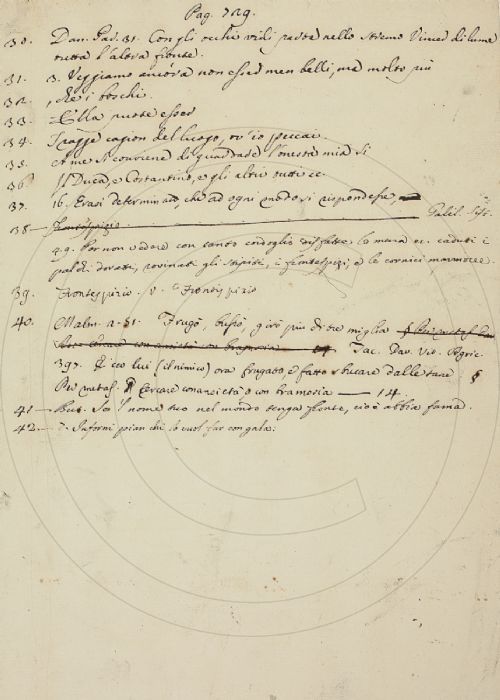 Pag. 729.
30. Dan. Par. 31. Con gli occhi vidi parte nello stremo Vincer di lume
tutta l'altra fronte.
31. 3. Veggiamo ancora non esser men belli, ma molto più
32. , che i boschi.
33. Ella puote esser
34. Tragge cagion del luogo, ov' io peccai.
35. A me si conviene di guardare l'onestà mia Si
36. Il Duca, e Costantino, e gli altri tutti ec.
37. 16. Erasi determinato, che ad ogni modo si rispondesse
38 — Frontespizio. Galil. Sist.
49. Per non vedere con tanto cordoglio disfatte le mura ec. caduti i
palchi dorati, rovinati gli stipiti, i frontespizj, e le cornici marmoree.
39. Frontespizio. v. Frontispizio
40. Malm. 2. 51. Frugò, bussò, girò più di tre miglia
Tac. Dav. Vit. Agric.
397. Ecco lui (il nimico) ora frugato e fatto sbucare dalle tane
Per metaf. Cercare con ansietà, o con bramosia — 14.
41 — But. Se 'l nome tuo nel mondo tenga fronte, cioè abbia fama.
42 — d'Informi poi anchi lo vuol far con gala.